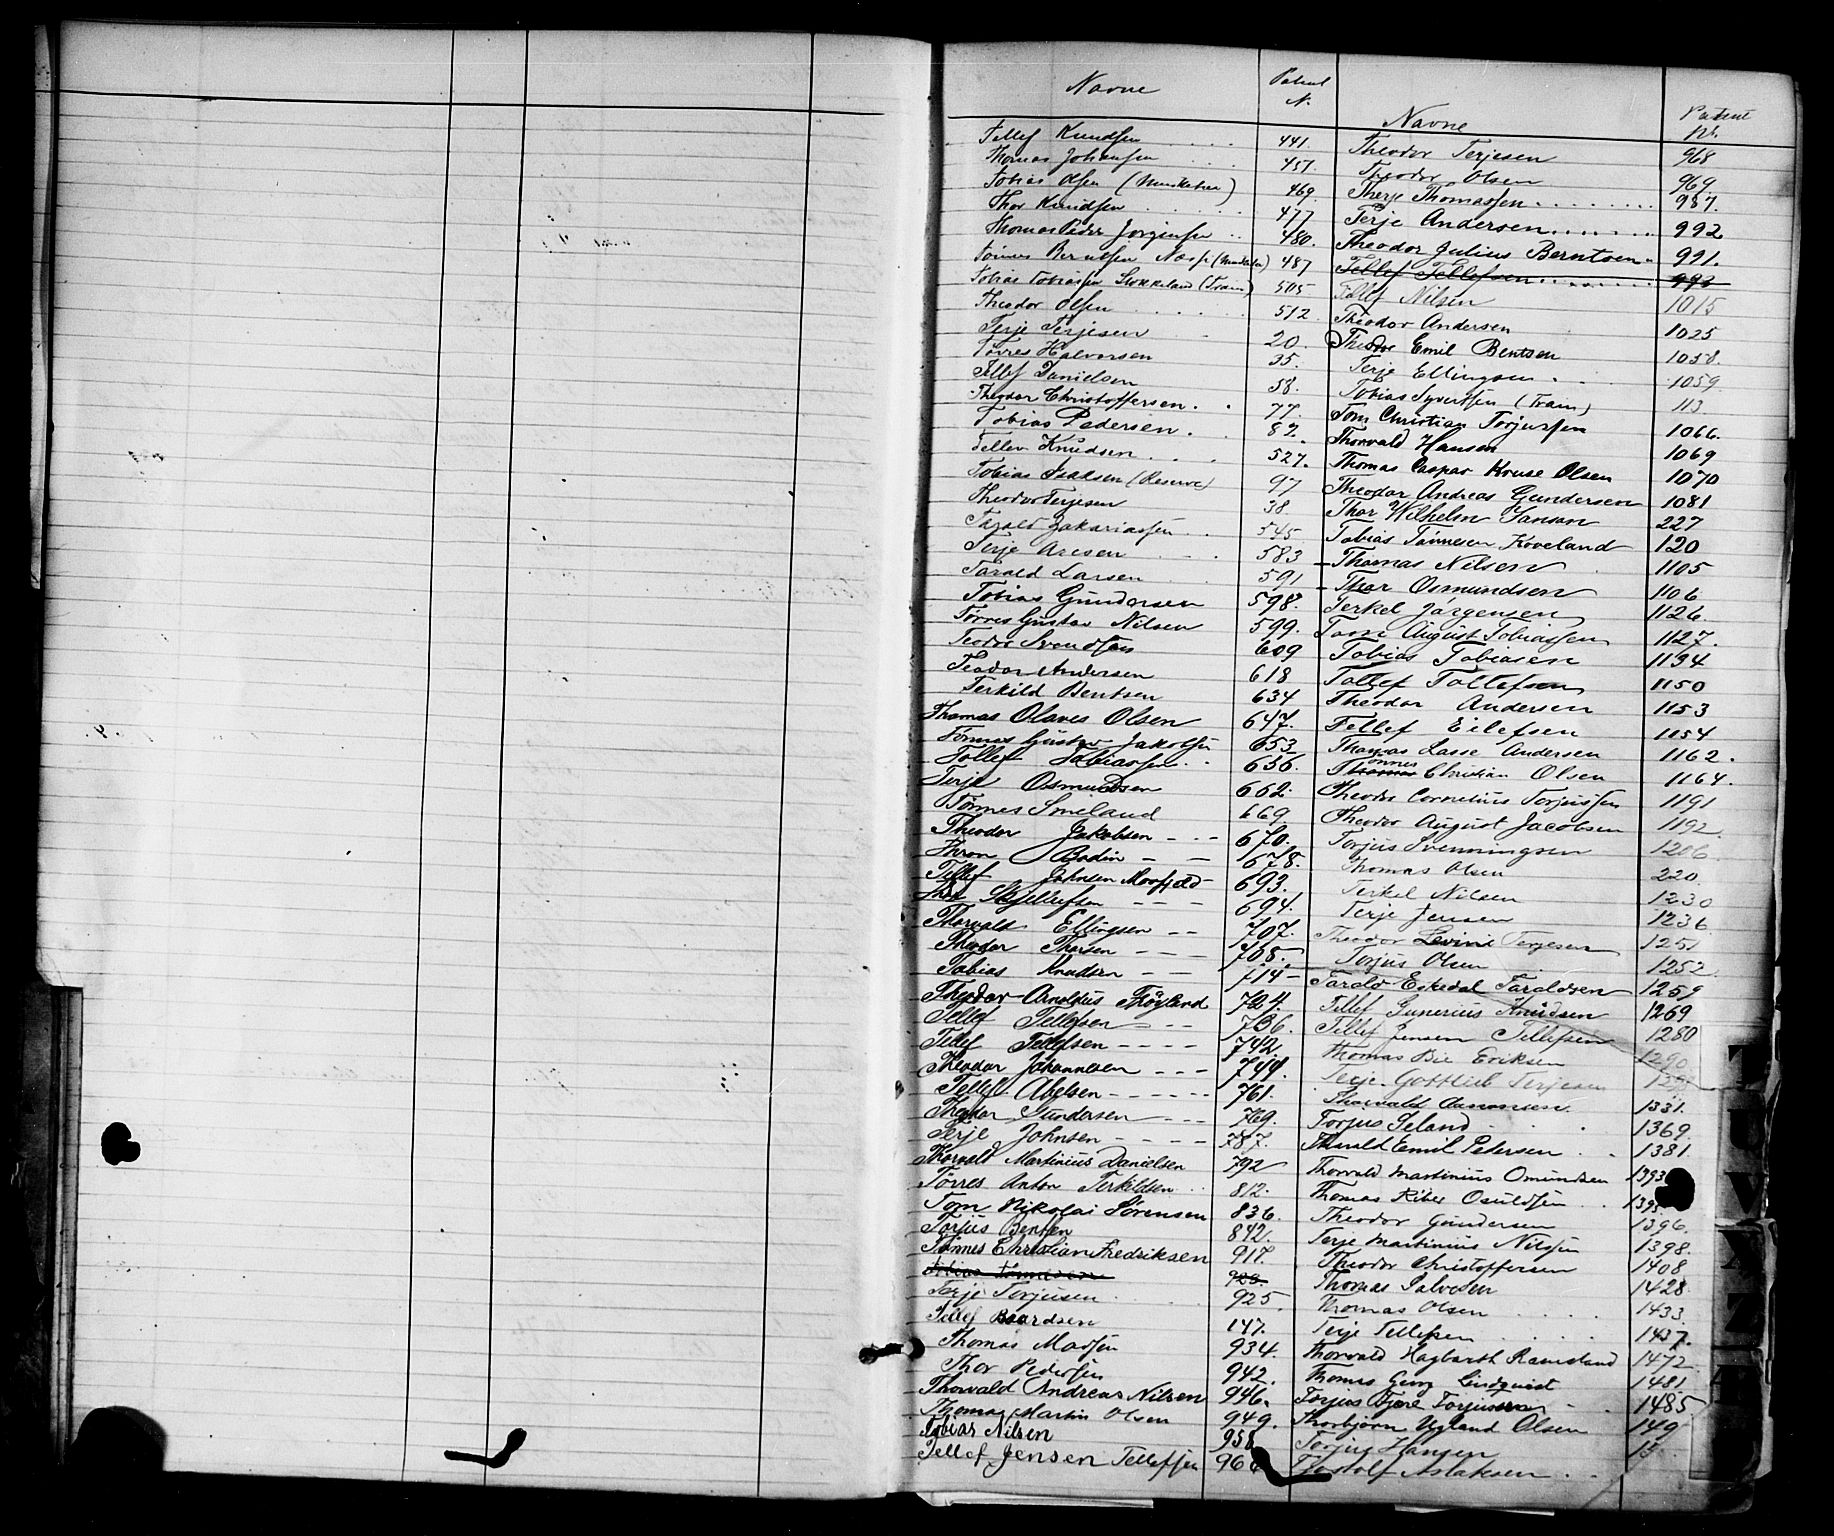 Navne
Patent N.
Tellef Knudsen 441.
Thomas Johansen 457.
Tobias Olsen 469.
Thor Knudsen 477
Thomas Peder Jørgensen 480.
Tønnes Berntsen Næss 487
Tobias Tobiassen Stokkeland (Træn) 505
Theodor Olsen 512
Terje Terjesen 20.
Tørres Halvorsen 35.
Tellef Danielsen 58.
Theodor Christoffersen. 77.
Tobias Pedersen. 82.
Tellev Knudsen 527.
Tobias Isaksen (Reserve) 97
Theodor Terjesen 38
Tarald Zakariassen 545.
Terje Aresen 583
Tarald Larsen 591
Tobias Gundersen 598.
Tørres Gustav Nilsen 599.
Teodor Svendsen 609
Teodor Andersen 618
Terkild Bentsen 634
Thomas Olaves Olsen 647.
Tønnes Gustav Jakobsen 653
Tollef Tobiassen 656.
Terje Osmundsen 662.
Tønnes Smeland 669
Theodor Jakobsen 670.
Thron Bodin 678.
Tellef Johnsen 693.
694.
Thorvald Ellingsen 707.
Theodor Thorsen 708.
Tobias Knudsen 714
Theodor Arnoldus Fløgland 724.
Tellef Tellefsen 736.
Tellef Tellefsen 742
Theodor Johannesen 744.
Tellef Abelsen 761.
Theodor Gundersen 769.
Terje Johnsen 787.
Thorvald Martinius Danielsen 792
Tørres Anton Terkildsen 812.
Tom Nikolai Sørensen 836.
Torjus Bentsen 842.
Tønnes Christian Fredriksen 917.
923.
Terje Torjusen 925.
Tellef Baardsen 147.
Thomas Madsen 934.
Thor Pedersen 942.
Thorvald Andreas Nilsen 946.
Thomas Martin Olsen 949.
Tobias Nilsen 958
Tellef Jensen Tellefsen 966
Navne
Patent Nr.
Theodor Terjesen 968
Theodor Olsen 969.
Therje Thomassen 987.
Terje Andersen 992
Theodor Julius Berntsen 991.
Tellef Tellefsen 993
Tellef Nilsen 1015
Theodor Andersen 1025
Theodor Emil Bentsen 1058.
Terje Ellingsen 1059
Tobias Syvertsen (Træn) 113
Tom Christian Torjussen 1066.
Thorvald Hansen 1069
Thomas Caspar Kruse Olsen 1070
Theodor Andreas Gundersen 1081
Thor Wilhelm Jansen 227
Tobias Tønnesen Koveland 120
Thomas Nilsen 1105
Thor Osmundsen 1106
Terkel Jørgensen 1126.
Tom August Tobiassen 1127.
Tobias Tobiasen 1134
Tollef Tollefsen 1150
Theodor Andersen 1153
Tellef Eilefsen 1154
Thomas Lasse Andersen 1162.
Tønnes Christian Olsen 1164.
Theodor Cornelius Torjussen 1191
Theodor August Jacobsen 1192.
Torjus Svenningsen 1206
Thomas Olsen 220
Terkel Nilsen 1230
Terje Jensen 1236
Theodor Levine Terjesen 1251
Torjus Olsen 1252
Tarald Eskedal Taraldsen 1259
Tellef Gunerius Knudsen 1269
Tellef Jensen Tellefsen 1280
Thomas Bie Eriksen 1290
Terje Gottlieb Terjesen
Thorvald Aanonsen 1331.
Torjus Ieland 1369.
Tharald Emil Petersen 1381
Thorvald Martinius Omundsen 1393
Thomas Riber Osuldsen 1395
Theodor Gundersen 1396
Terje Martinius Nilsen 1398.
Theodor Christoffersen 1408
Thomas Salvesen 1428
Thomas Olsen 1433.
Terje Tellefsen 1437.
Thorvald Hagbarth Ramsland 1472
Thomas Georg Lindqvist 1481
Torjus Fjære Torjussen 1485
Thorbjørn Ugland Olsen 149
Torjus Hansen
Thorolf Aslaksen
T
U
V
X
Z